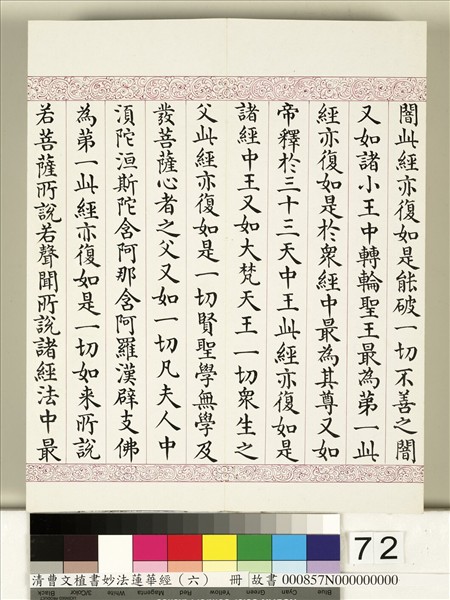 闇此經亦復如是能破一切不善之闇
又如諸小王中轉輪聖王最為第一此
經亦復如是於衆經中最為其尊又如
帝釋於三十三天中王此經亦復如是
諸經中王又如大梵天王一切衆生之
父此經亦復如是一切賢聖學無學及
發菩薩心者之父又如一切凡夫人中
須陀洹斯陀含阿那含阿羅漢辟支佛
為第一此經亦復如是一切如来所說
若菩薩所說若聲聞所說諸經法中最
72
Black
3/Color
White
Magenta
Yellow
Green
Cyan
清曹文植書妙法蓮華經（六） 冊 故書 000857N000000000